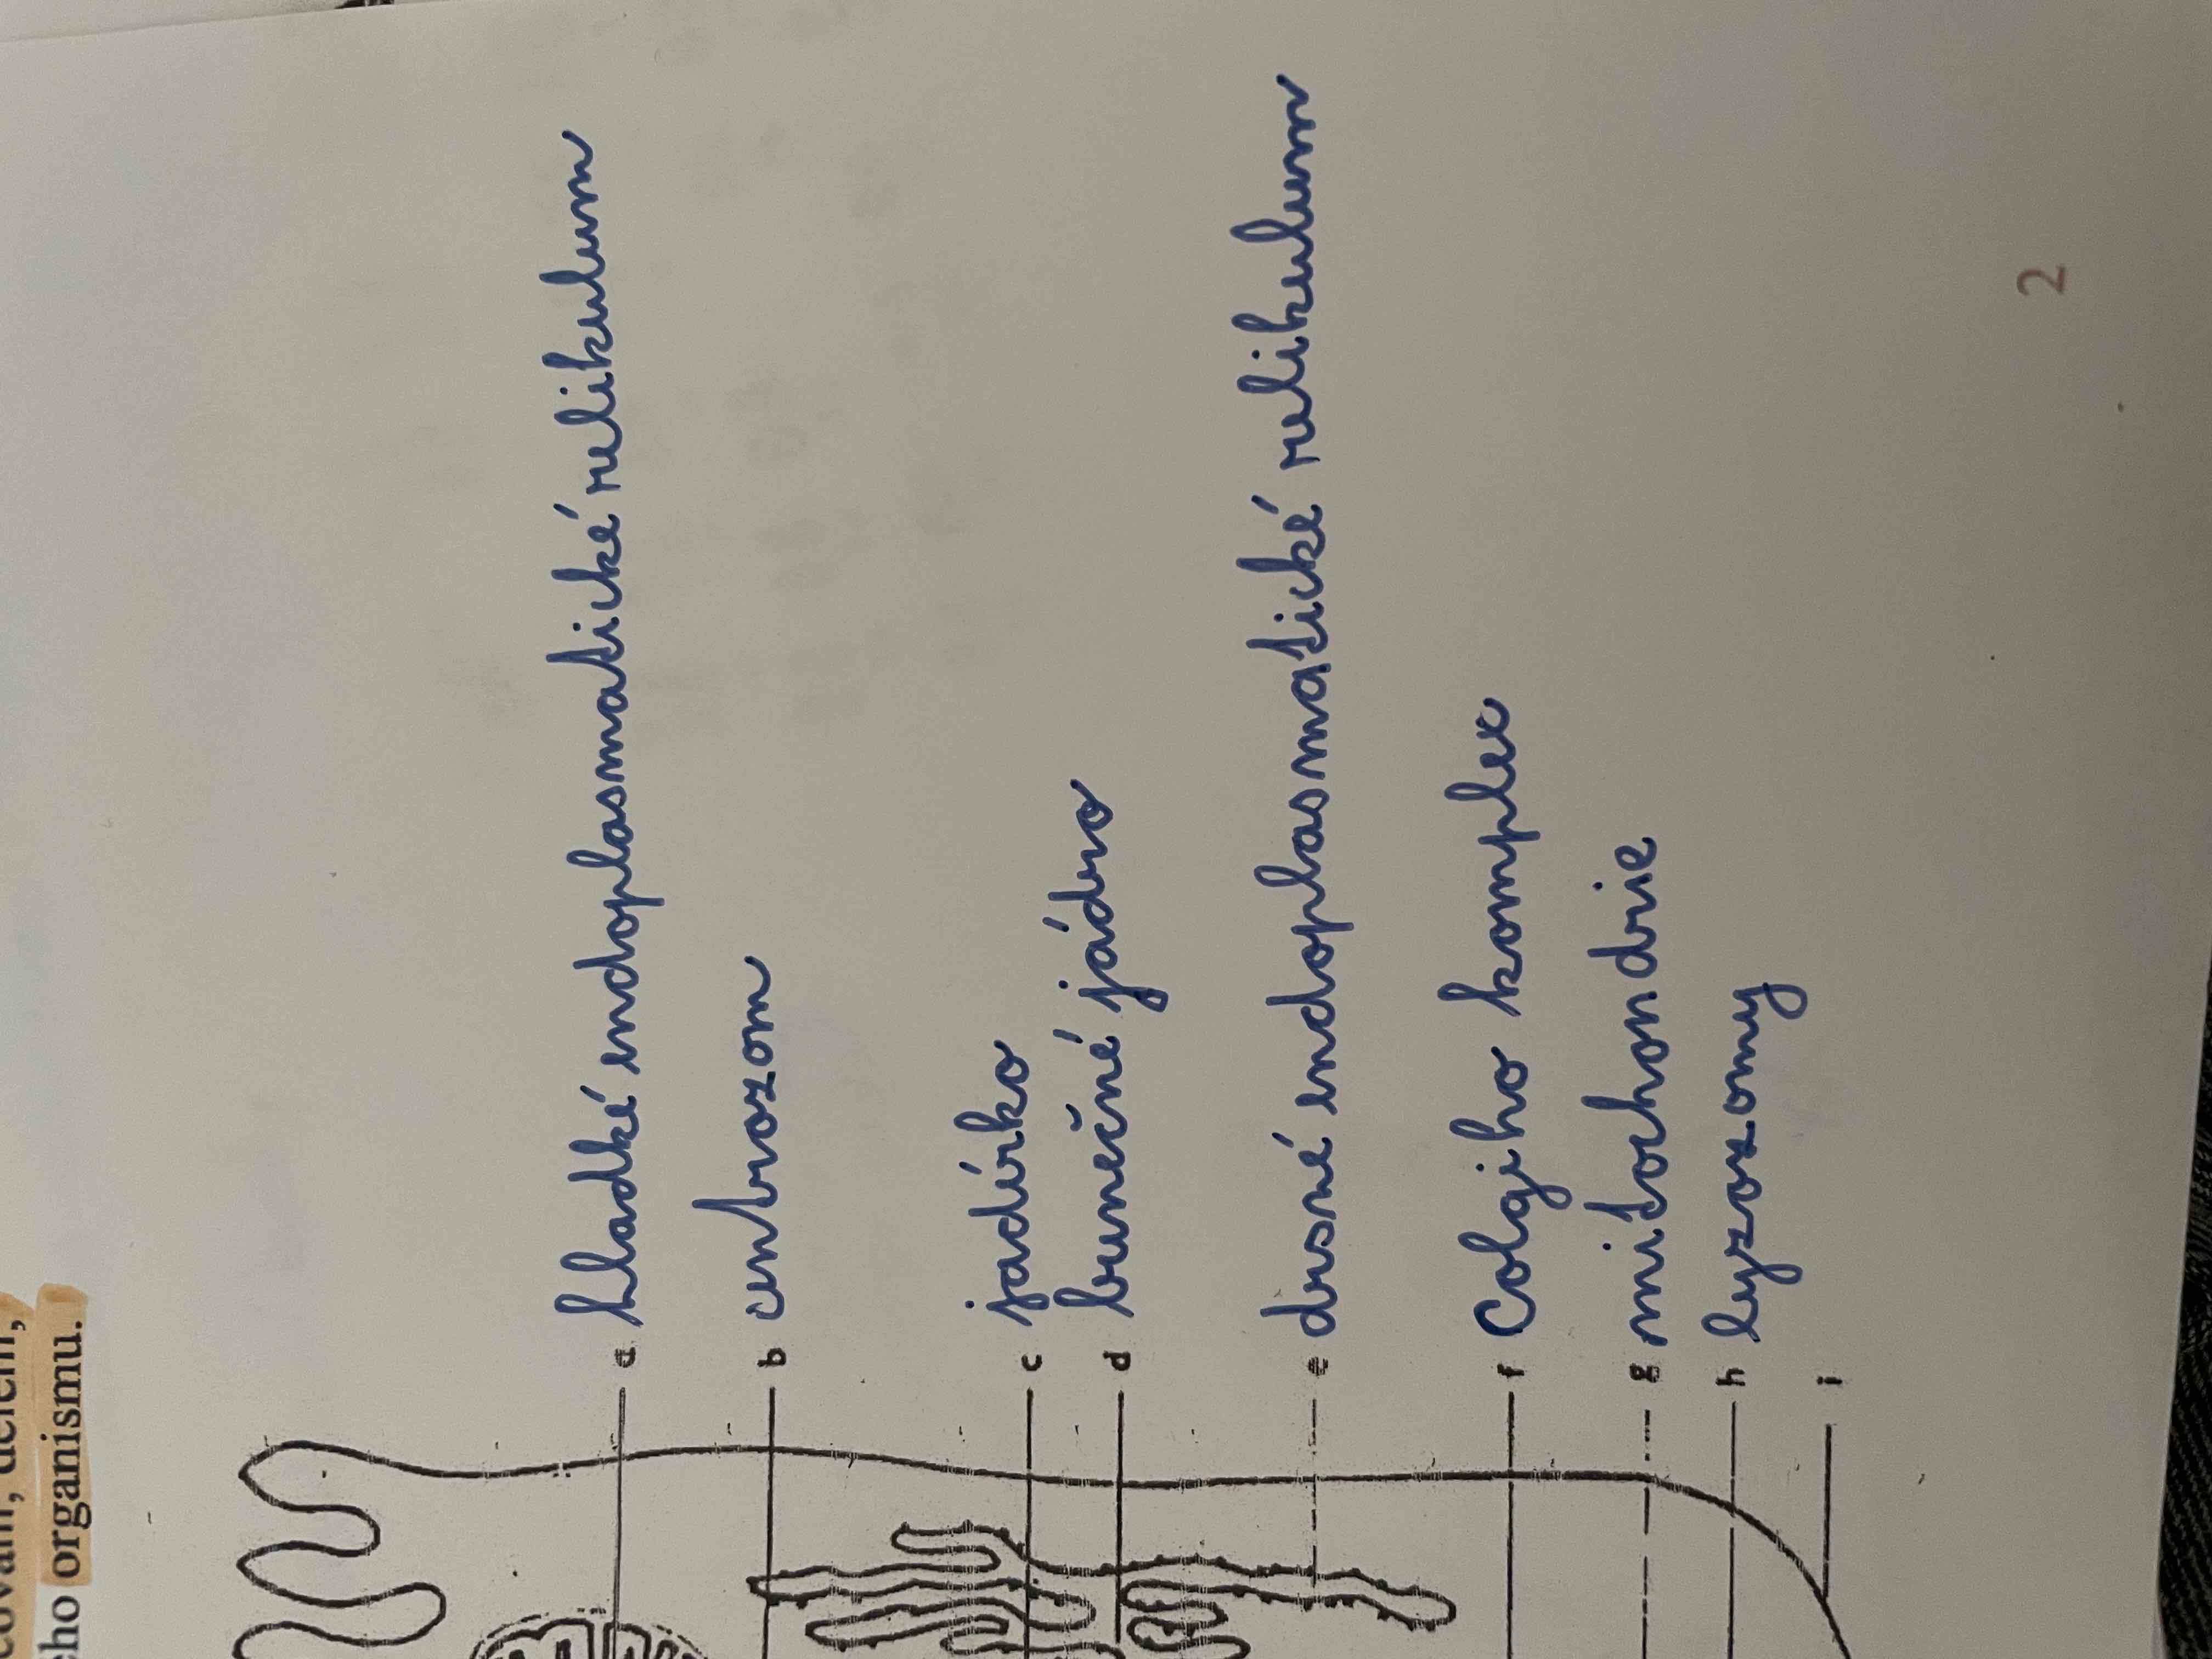 organismu.
a hladké endoplasmatické retikulum
b centrozom
c jadérko
d bunečné jádro
e drsné endoplasmatické retikulum
f Golgiho komplex
g mitochondrie
h lyzozomy
i
2